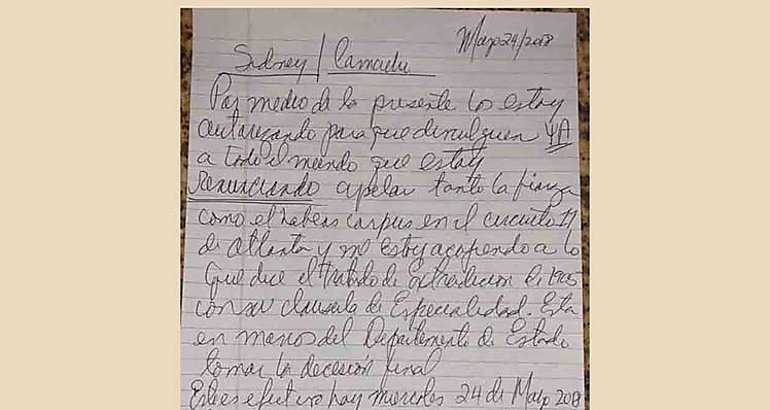 Mayo 24/2018
Sidney / Camacho
Por medio de la presente los estoy
autorizando para que divulguen YA
a todo el mundo que estoy
Renunciando apelar tanto la fianza
como el habeas corpus en el circuito 11
de Atlanta y me estoy acogiendo a lo
que dice el tratado de extradicion de 1905
con su clausula de Especialidad. Esta
en manos del Departamento de Estado
tomar la decesión final
Este es efectivo hoy miercoles 24 de Mayo 2018